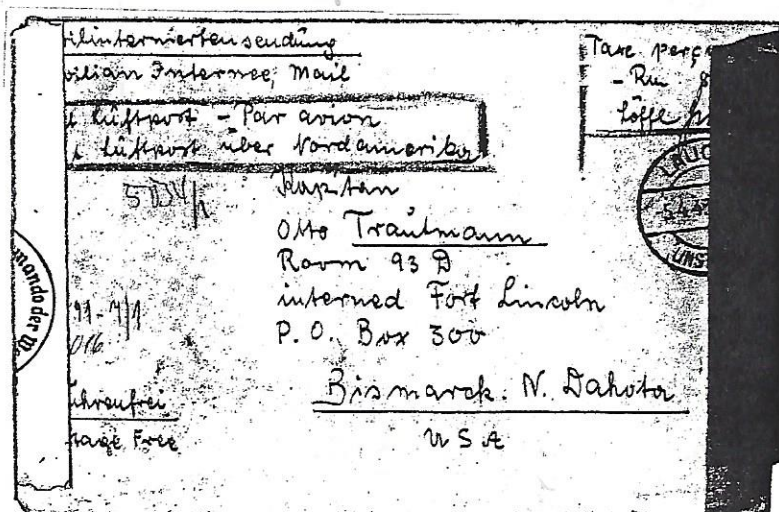 ilinterniertensendung
vilian Internee, Mail
t Luftpost - Par avion
t Luftpost über Nordamerika
Taxe perç
- Rm
5034/1
Kapitän
Otto Trautmann
Room 93 D
interned Fort Lincoln
P.O. Box 300
Bismarck. N. Dakota
U S A
mando der W
ührenfrei
tage Free
LAUC
UNS